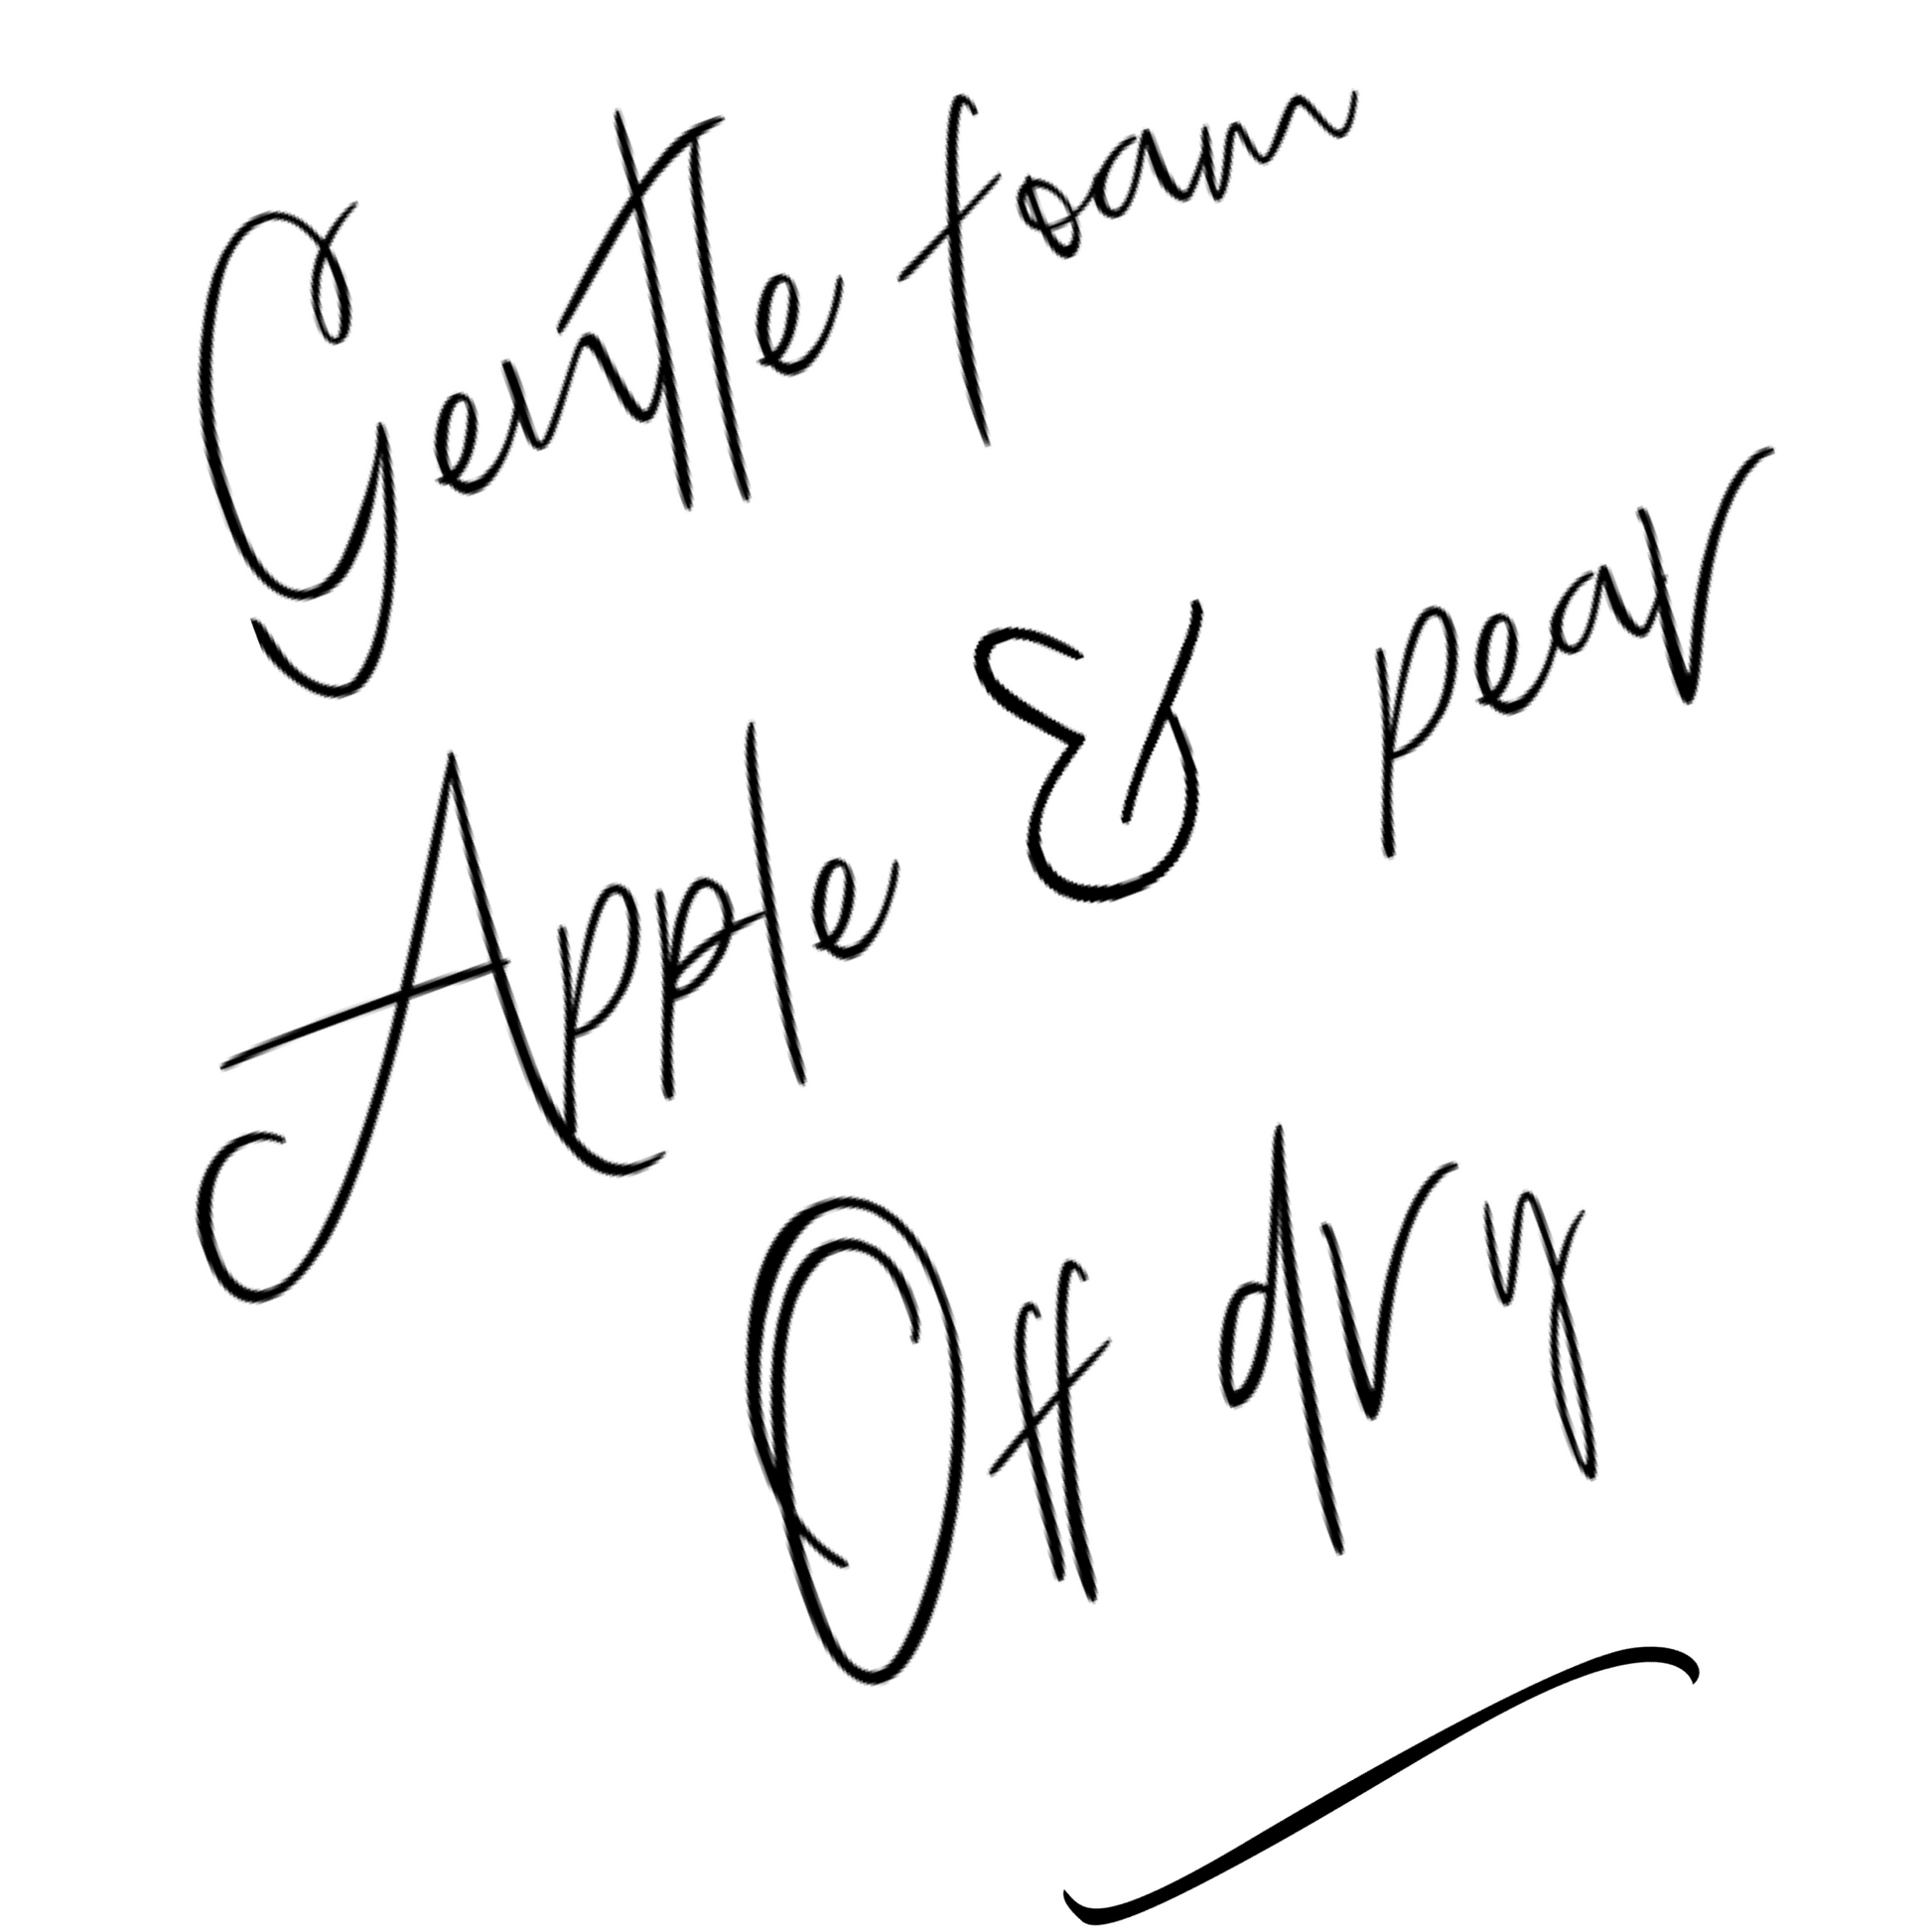 Gentle foam
Apple & pear
Off dry